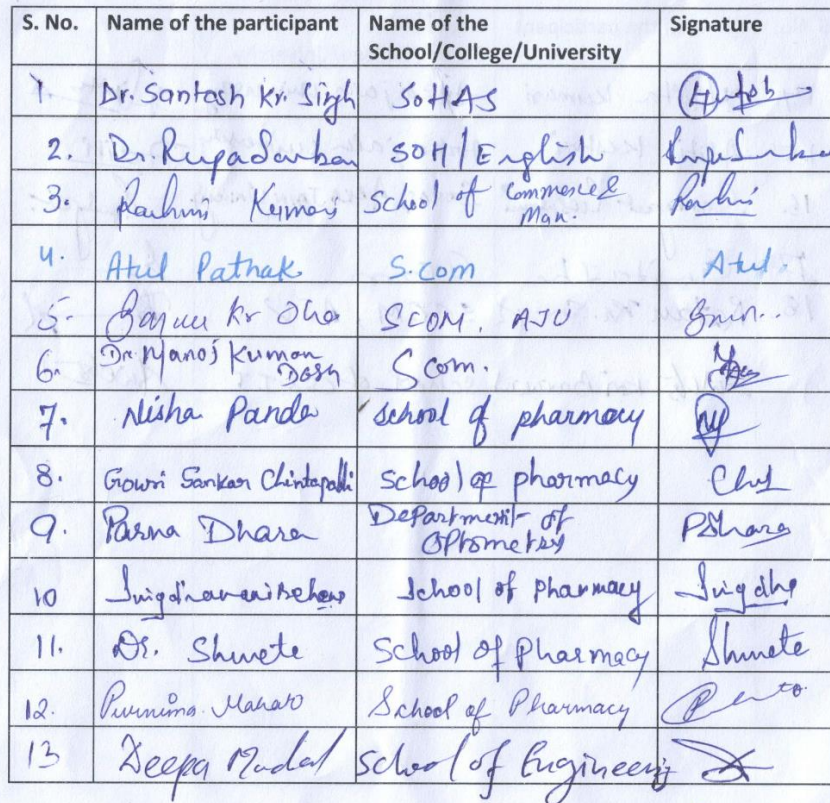 S. No. Name of the participant Name of the School/College/University Signature
1. Dr. Santosh Kr Singh SoHAS
2. Dr. Rupa Sarkar SOH/English Rupa Sarkar
3. Rashmi Kumari School of Commerce & Man. Rashmi
4. Atul Pathak S.com Atul.
5. Kr Ojha SCOM, AJU
6. Dr. Manoj Kumar Dash S com.
7. Nisha Panda School of pharmacy
8. Gowri Sankar Chintapalli School of pharmacy
9. Parna Dhara Department of Optometry PDhara
10 School of Pharmacy
11. Dr. Shweta School of Pharmacy Shweta
12. Purnima Mahato School of Pharmacy
13 Deepa Modal School of Engineering